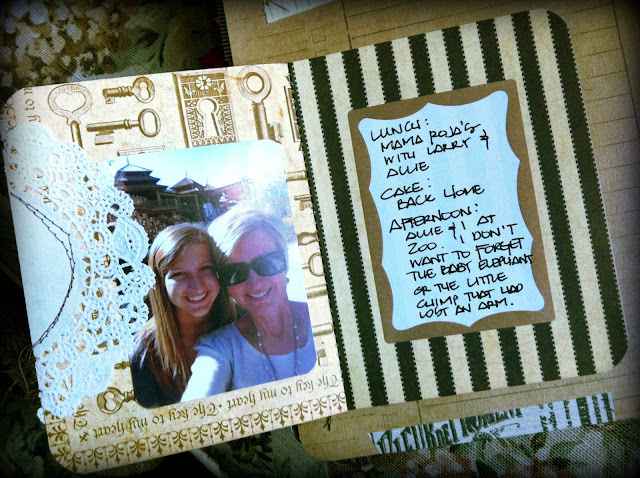 LUNCH:
MAMA ROJA'S
WITH LARRY &
ALLIE
CAKE:
BACK HOME
AFTERNOON:
ALLIE & I AT
ZOO. I DON'T
WANT TO FORGET
THE BABY ELEPHANT
OR THE LITTLE
CHIMP THAT HAD
LOST AN ARM.
The key to my heart The key to my heart